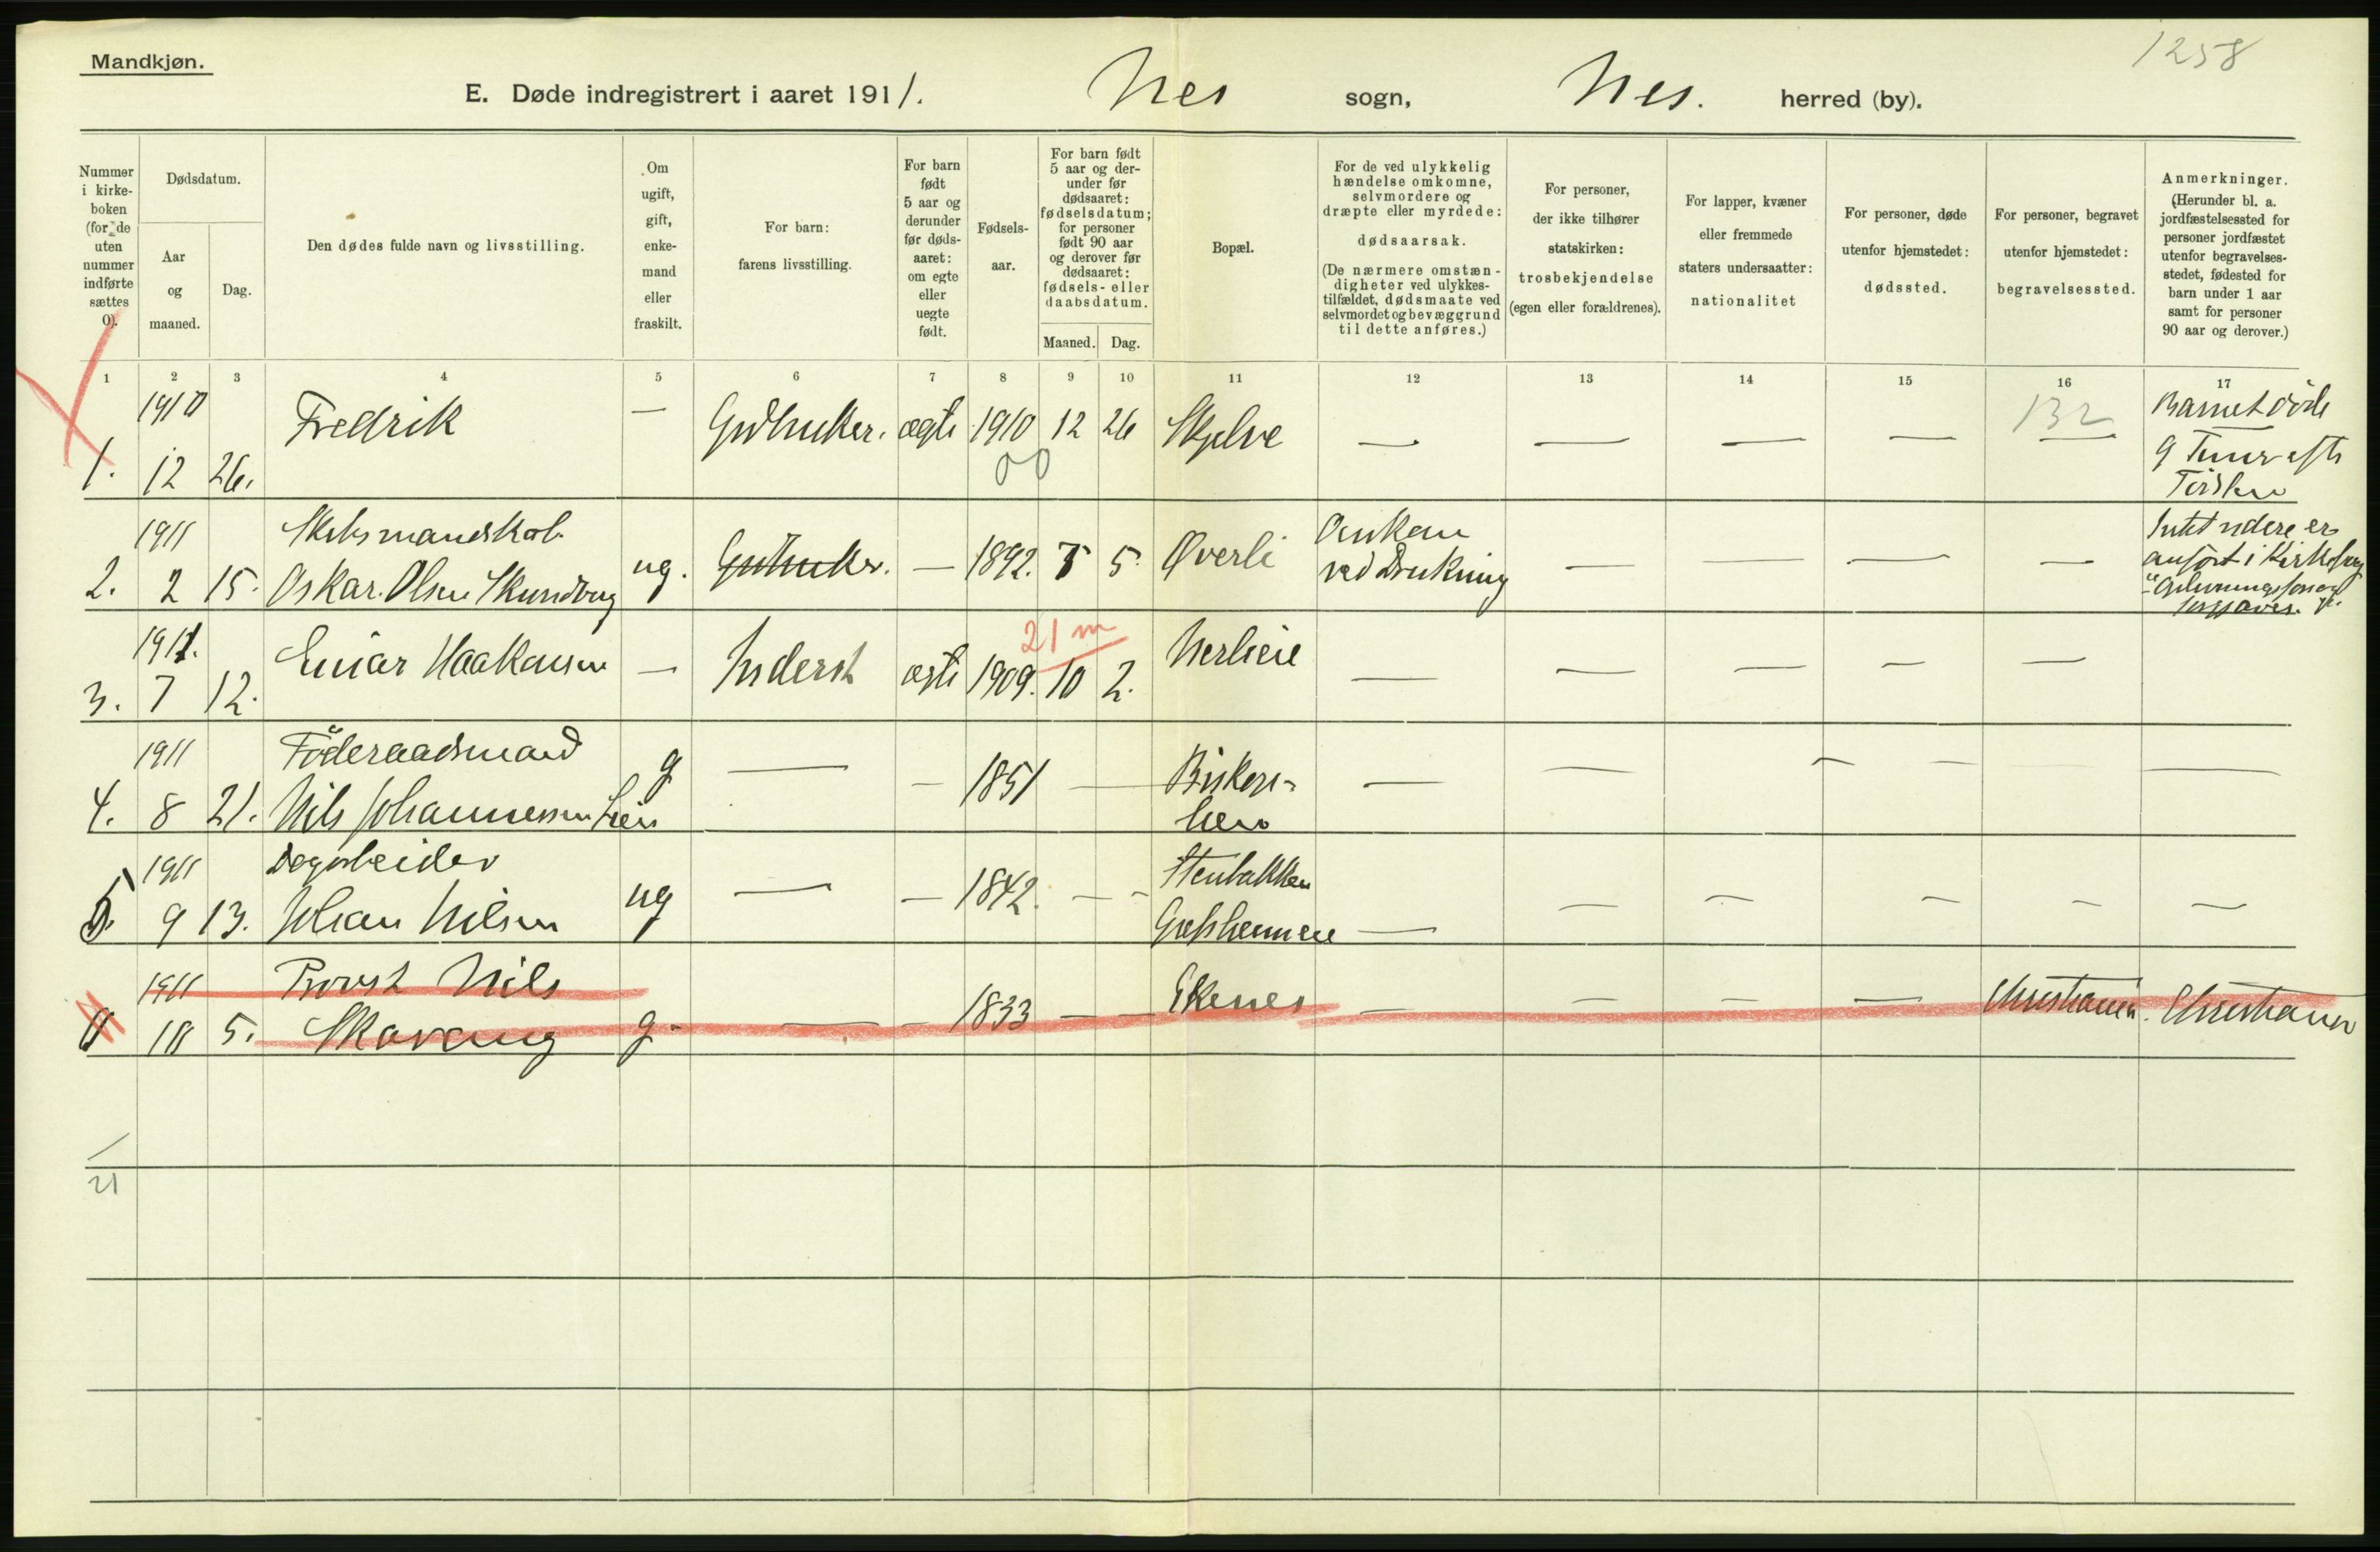 Mandkjøn.
1258
E. Døde indregistrert i aaret 1911. Nes sogn, Nes. herred (by).
Nummer i kirke-boken (for de uten nummer indførte sættes 0).
Dødsdatum.
Aar og maaned.
Dag.
Den dødes fulde navn og livsstilling.
Om ugift, gift, enke-mand eller fraskilt.
For barn: farens livsstilling.
For barn født 5 aar og derunder før døds-aaret: om egte eller uegte født.
Fødsels-aar.
For barn født 5 aar og der-under før dødsaaret: fødselsdatum; for personer født 90 aar og derover før dødsaaret: fødsels- eller daabsdatum.
Maaned. Dag.
Bopæl.
For de ved ulykkelig hændelse omkomne, selvmordere og dræpte eller myrdede: dødsaarsak. (De nærmere omstæn-digheter ved ulykkes-tilfældet, dødsmaate ved selvmordet og bevæggrund til dette anføres.)
For personer, der ikke tilhører statskirken: trosbekjendelse (egen eller forældrenes).
For lapper, kvæner eller fremmede staters undersaatter: nationalitet
For personer, døde utenfor hjemstedet: dødssted.
For personer, begravet utenfor hjemstedet: begravelsessted.
Anmerkninger. (Herunder bl. a. jordfæstelsessted for personer jordfæstet utenfor begravelses-stedet, fødested for barn under 1 aar samt for personer 90 aar og derover.)
1 2 3 4 5 6 7 8 9 10 11 12 13 14 15 16 17
1910
1. 12 26. Fredrik — Grdbruker. ægte 1910 12 26 Skjelve — — — — — 132
00
Barnet døde
9 Timer efter
Fødselen
1911
2. 2 15. Oskar Olsen ug. Grdbruker. — 1892. 5 Øverli
ved Drukning — — — —
Intet videre er
anført i Kirkebog
1911.
3. 7 12. Einar Haakonsen — Inderst ægte 1909. 10 2. — — — — —
21 m
1911 Föderaadsmand
4. 8 21. Nils Johannessen Lien g — — 1851 — — — — — — —
1911 Dagarbeider
5. 9 13. Johan Nilsen ug — — 1842. — — Stenbakken — — — — — —
1911 Provst Nils
5. Skavang g. — — 1833 — — Ekenes — — — — Christiania. Christiania
/
21